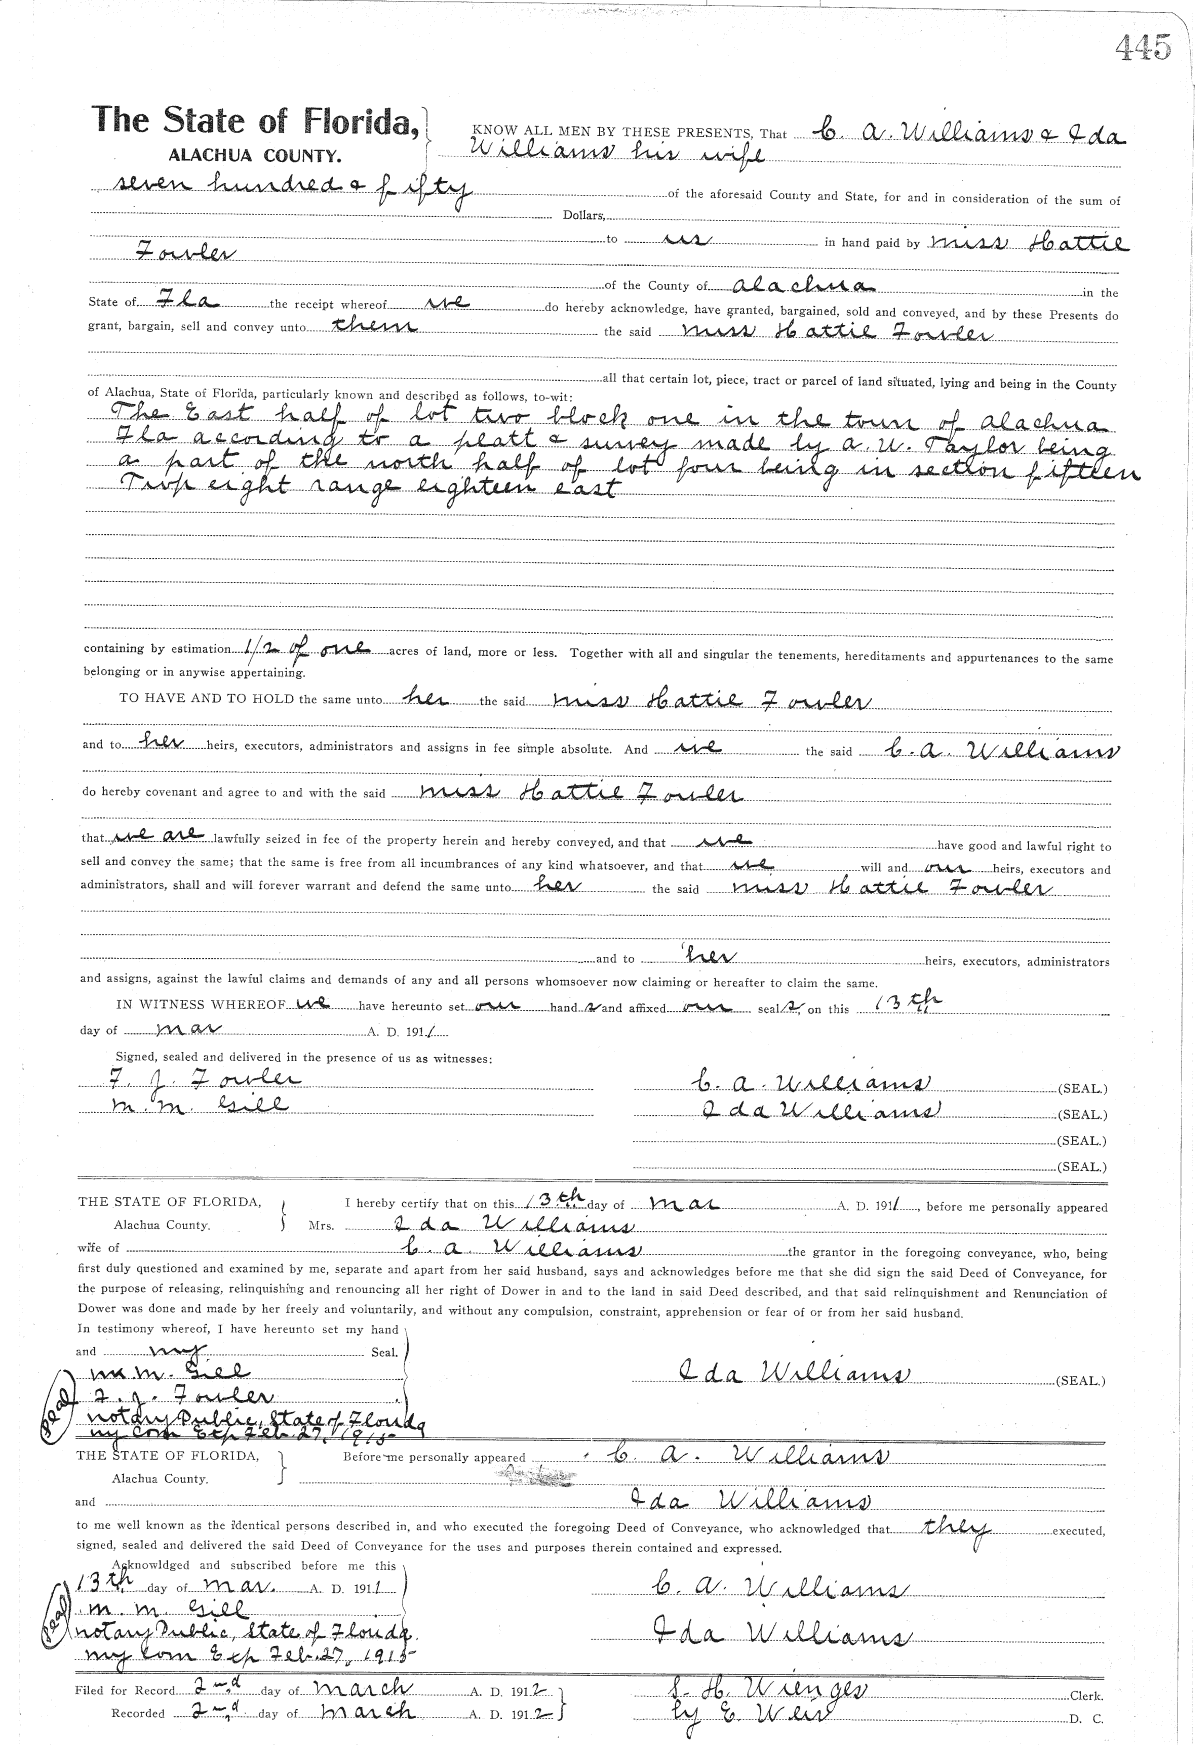 445
The State of Florida,
ALACHUA COUNTY.
KNOW ALL MEN BY THESE PRESENTS, That C. A. Williams & Ida
Williams his wife
seven hundred & fifty of the aforesaid County and State, for and in consideration of the sum of
Dollars,
to us in hand paid by miss Hattie
Fowler
of the County of alachua in the
State of Fla the receipt whereof we do hereby acknowledge, have granted, bargained, sold and conveyed, and by these Presents do
grant, bargain, sell and convey unto them the said miss Hattie Fowler
all that certain lot, piece, tract or parcel of land situated, lying and being in the County
of Alachua, State of Florida, particularly known and described as follows, to-wit:
The East half of lot two block one in the town of alachua
Fla according to a platt & survey made by a. W. Taylor being
a part of the north half of lot four being in section fifteen
Twp eight range eighteen east
containing by estimation 1/2 of one acres of land, more or less. Together with all and singular the tenements, hereditaments and appurtenances to the same
belonging or in anywise appertaining.
TO HAVE AND TO HOLD the same unto her the said miss Hattie Fowler
and to her heirs, executors, administrators and assigns in fee simple absolute. And we the said C. A. Williams
do hereby covenant and agree to and with the said miss Hattie Fowler
that we are lawfully seized in fee of the property herein and hereby conveyed, and that we have good and lawful right to
sell and convey the same; that the same is free from all incumbrances of any kind whatsoever, and that we will and our heirs, executors and
administrators, shall and will forever warrant and defend the same unto her the said miss Hattie Fowler
and to her heirs, executors, administrators
and assigns, against the lawful claims and demands of any and all persons whomsoever now claiming or hereafter to claim the same.
IN WITNESS WHEREOF we have hereunto set our hand s and affixed our seal s, on this 13th
day of mar A. D. 1911
Signed, sealed and delivered in the presence of us as witnesses:
F. J. Fowler C. A. Williams (SEAL.)
m. m. Gill Ida Williams (SEAL.)
(SEAL.)
(SEAL.)
THE STATE OF FLORIDA, I hereby certify that on this 13th day of mar A. D. 1911, before me personally appeared
Alachua County. Mrs. Ida Williams
wife of C. A. Williams the grantor in the foregoing conveyance, who, being
first duly questioned and examined by me, separate and apart from her said husband, says and acknowledges before me that she did sign the said Deed of Conveyance, for
the purpose of releasing, relinquishing and renouncing all her right of Dower in and to the land in said Deed described, and that said relinquishment and Renunciation of
Dower was done and made by her freely and voluntarily, and without any compulsion, constraint, apprehension or fear of or from her said husband.
In testimony whereof, I have hereunto set my hand
and my Seal.
m. m. Gill Ida Williams (SEAL.)
F. J. Fowler
seal
notary Public, State of Florida
my Com Exp Feb. 27, 1915
THE STATE OF FLORIDA, Before me personally appeared C. A. Williams
Alachua County.
and Ida Williams
to me well known as the identical persons described in, and who executed the foregoing Deed of Conveyance, who acknowledged that they executed,
signed, sealed and delivered the said Deed of Conveyance for the uses and purposes therein contained and expressed.
Acknowldged and subscribed before me this
13th day of mar. A. D. 1911 C. A. Williams
m. m. Gill
seal
notary Public, State of Florida. Ida Williams
my Com Exp Feb. 27, 1915
Filed for Record 2nd day of march A. D. 1912 S. H. Wienges Clerk.
Recorded 2nd day of march A. D. 1912 by E. Weir D. C.